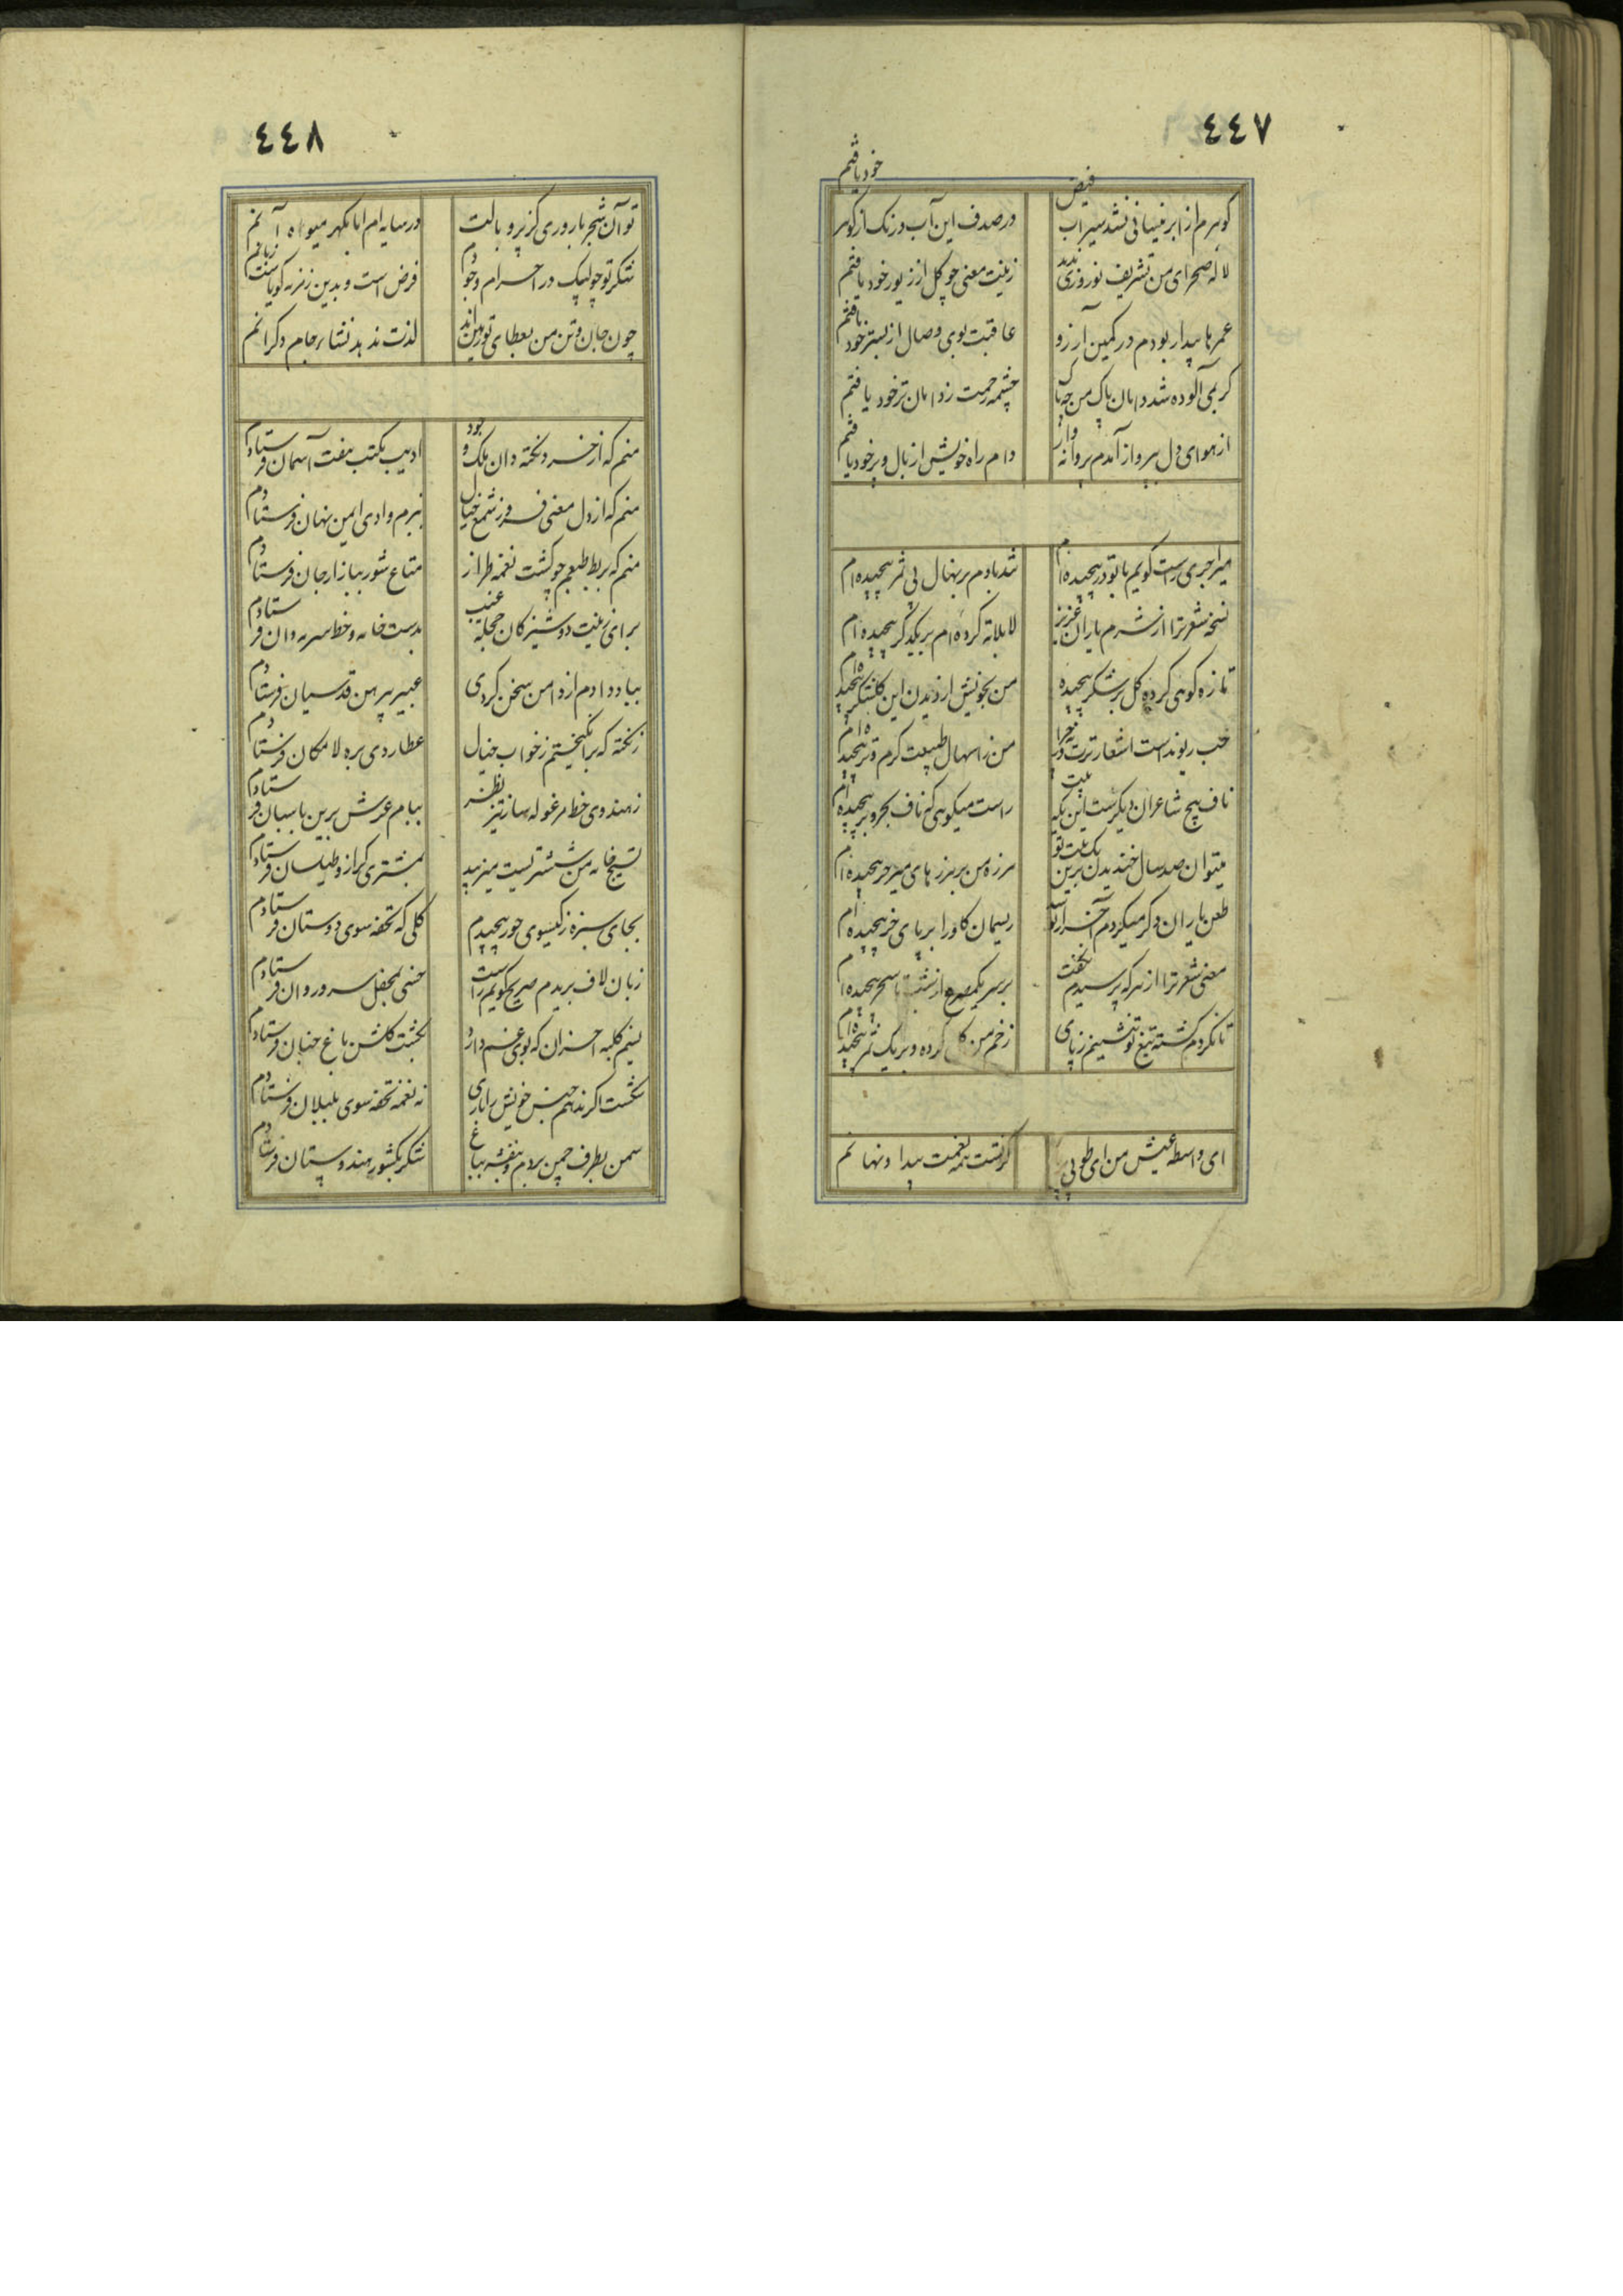 ٤٤٧
گوهرم از ابر نیسانی نشد سیراب فیض
در صدف این آب و رنگ از گوهر خود یافتم
لاله صحرای من تشریف نوروزی ندید
زینت معنی چو گل از زیور خود یافتم
عمرها بیدار بودم در کمین آرزو
عاقبت بوی وصال از بستر خود یافتم
گر بمی آلوده شد دامان پاک من چه باک
چشمه رحمت ز دامان تر خود یافتم
از هوای دل بپرواز آمدم پروانه وار
دام راه خویش از بال و پر خود یافتم
میراجری راست گویم با تو در پیچیده ام
شد بادم بر نهال بی ثمر پیچیده ام
نسخه شعر ترا از شرم یاران عزیز
لابلا ته کرده ام بر یکدگر پیچیده ام
تازه گوهی کرده گل بر شکر پیچیده
من بخویش از دیدن این گلشکر پیچیده ام
حب ریوند است اشعار ترت
من ز اسهال طبیعت گرم و تر پیچیده ام
ناف پیچ شاعران دیگرست این بیت
راست میگویی که ناف بحر و بر پیچیده ام
میتوان صد سال خندیدن برین یک بیت تو
هرزه من بر هرزهای میر حر پیچیده ام
طعن یاران دگر میکردم آخر از تو
ریسمان گاو را بر پای خر پیچیده ام
معنی شعر ترا از هر که پرسیدم نگفت
بر سر یکمصرع از شب تا سحر پیچیده ام
تا نگردم کشته تیغ تو ننشینم ز پای
زخم من گل کرده و بر یک ثمر پیچیده ام
ای واسطه عیش من ای طوبی
گر نیست به نعمت پیدا و نهانم
٤٤٨
تو آن شجر باروری کز پر و بالت
در سایه ام اما بگهر میوه
شکر تو چو لبیک در احرام وجودم
فرض است و بدین زمزمه گویاست زبانم
چون جان و تن من بعطای تو رهین‌اند
لذت ندهد نشاء جام دگرانم
منم که از خرد و نکته دان ملک وجود
ادیب مکتب هفت آسمان فرستادم
منم که از دل معنی فروز شمع خیال
ببزم وادی ایمن نهان فرستادم
منم که بربط طبعم چو گشت نغمه طراز
متاع شور ببازار جان فرستادم
برای زینت دوشیزگان حجله غیب
بدست خامه و خط سرمه دان فرستادم
بباد دادم از دامن سخن گردی
عبیر پیرهن قدسیان فرستادم
ز نکته که برانگیختم ز خواب خیال
عطاردی بره لامکان فرستادم
ز هندوی خط مرغوله ساز تیز نظر
ببام عرش برین پاسبان فرستادم
بمشتری کراز و طیلسان فرستادم
بجای سبزه ز گیسوی حور پیچیدم
گلی که تحفه سوی دوستان فرستادم
زبان لاف بریدم صریح گویم راست
خسی بمحفل سرو روان فرستادم
نسیم کلبه احزان که بوی غم دارد
بگشت گلشن باغ جنان فرستادم
شکست اگر ندهم جنس خویش را باری
نه نغمه تحفه سوی بلبلان فرستادم
سمن بطرف چمن بردم و بنفشه بباغ
شکر بکشور هندوستان فرستادم